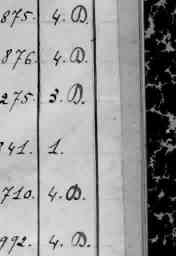 875. 4. D.
876. 4. D.
275. 3. D.
841. 1.
710. 4. D.
992. 4. D.